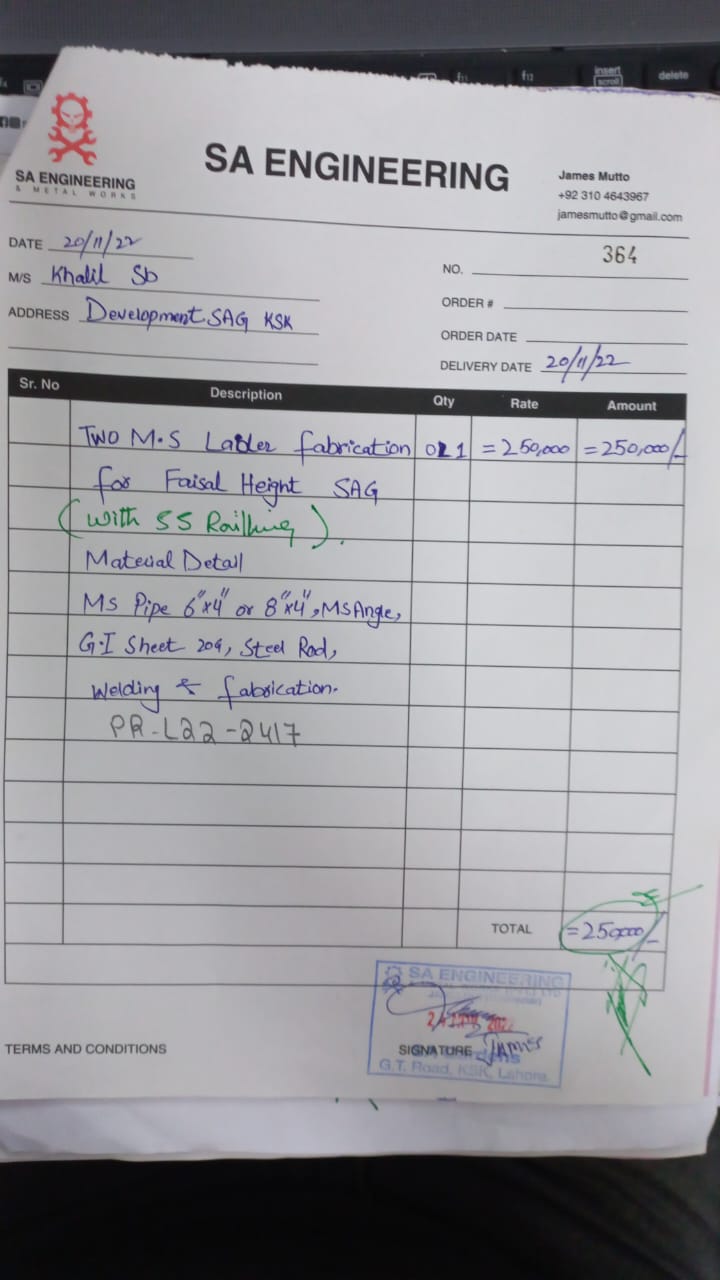 f11 f12 insert scroll delete
SA ENGINEERING
& METAL WORKS
SA ENGINEERING
James Mutto
+92 310 4643967
jamesmutto@gmail.com
DATE 20/11/22
M/S Khalil Sb
ADDRESS Development SAG KSK
NO. 364
ORDER #
ORDER DATE
DELIVERY DATE 20/11/22
Sr. No Description Qty Rate Amount
Two M.S Ladder fabrication 01 =250,000 =250,000/-
for Faisal Height SAG
(with SS Railling).
Material Detail
MS Pipe 6"x4" or 8"x4", MS Angle,
G.I Sheet 20G, Steel Rod,
Welding & fabrication.
PR-L22-2417
TOTAL =250,000/-
SA ENGINEERING
SIGNATURE JAMES
G.T. Road, KSK, Lahore.
TERMS AND CONDITIONS